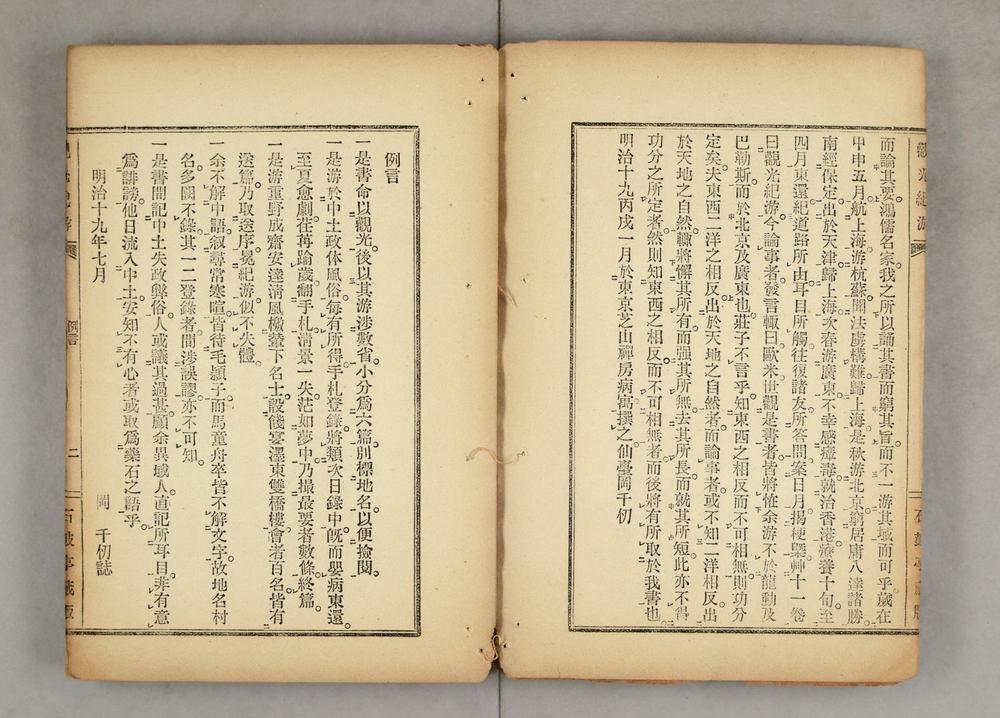 而論其要鴻儒名家我之所以誦其書而窮其旨而不一游其域而可乎歲在
甲申五月航上海游杭蘇閒法虜構難歸上海是秋游北京窮居庸八達諸勝
南經保定出於天津歸上海次春游廣東不幸感瘴毒就治香港療養十旬至
四月東還紀道路所由耳目所觸往復諸友所答問案日月揭梗槩艸十一卷
曰觀光紀游今論事者發言輙曰歐米世觀是書者皆將恠余游不於龍動及
巴勒斯而於北京及廣東也莊子不言乎知東西之相反而不可相無則功分
定矣夫東西二洋之相反出於天地之自然者而論事者或不知二洋相反出
於天地之自然輙將懈其所有而强其所無去其所長而就其所短此亦不得
功分之所定者然則知東西之相反而不可相無者而後將有所取於我書也
明治十九丙戌一月於東京芝山禪房病寓撰之仙臺岡千仞
例言
一是書命以觀光後以其游涉數省小分爲六篇別標地名以便撿閱
一是游於中土政体風俗每有所得手札登錄將類次日錄中旣而嬰病東還
至夏愈劇荏苒踰歲翻手札淸景一失茫如夢中乃撮最要者數條終篇
一是游重野成齋安達淸風檄輦下名士設餞宴墨東雙橋樓會者百名皆有
送篇乃取送序冕紀游似不失體
一余不解中語叙尋常寒暄皆待毛穎子而馬童舟卒皆不解文字故地名村
名多闕不錄其一二登錄者間涉誤謬亦不可知
一是書間記中土失政弊俗人或議其過甚顧余異域人直記所耳目非有意
爲誹謗他日流入中土安知不有心者或取爲藥石之語乎
明治十九年七月
岡　千仞誌
例言
二